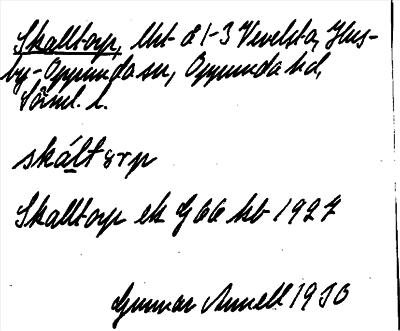 Skalltorp, lht å 1-3 Vevelsta, Hus-
by-Oppunda sn, Oppunda hd,
Söml. l.
skáltørp
Skalltorp ek G 66 kb 1927
Gunnar Annell 1930